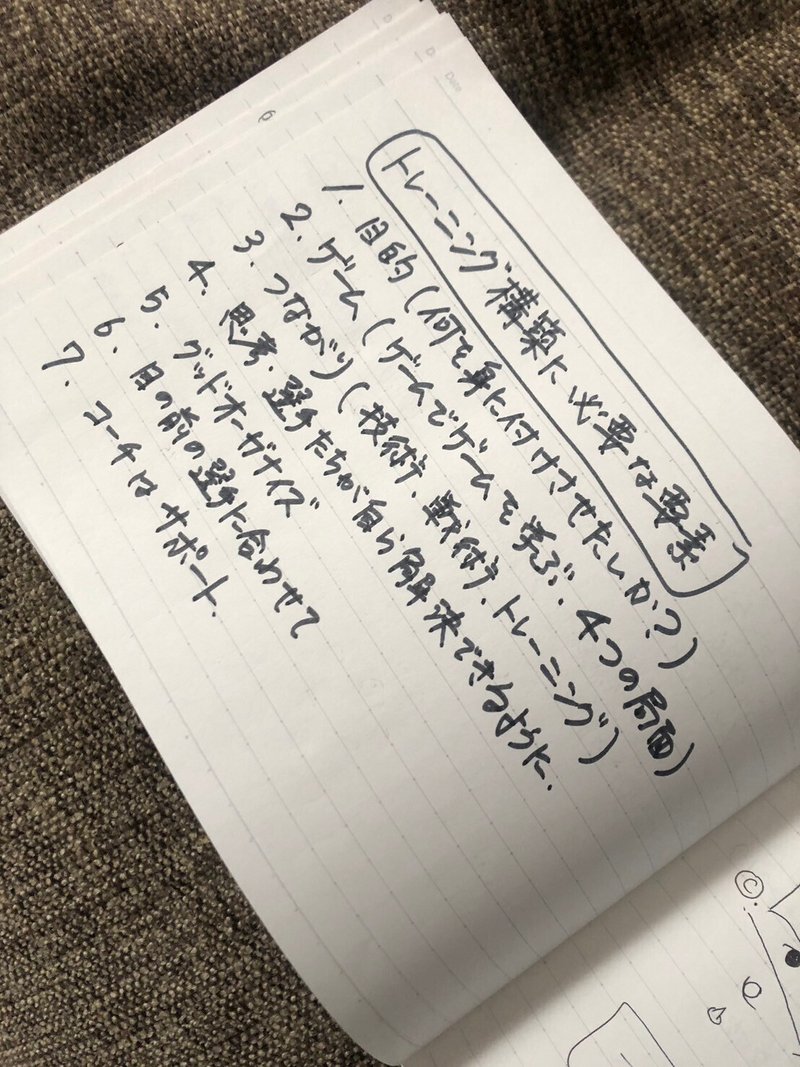 トレーニング構築に必要な要素
1. 目的(何を身に付けさせたいか?)
2. ゲーム(ゲームでゲームを学ぶ、4つの局面)
3. つながり(技術、戦術、トレーニング)
4. 思考、選手たちが自ら解決できるように、
5. グッドオーガナイズ
6. 目の前の選手に合わせて
7. コーチはサポート、
Date
©